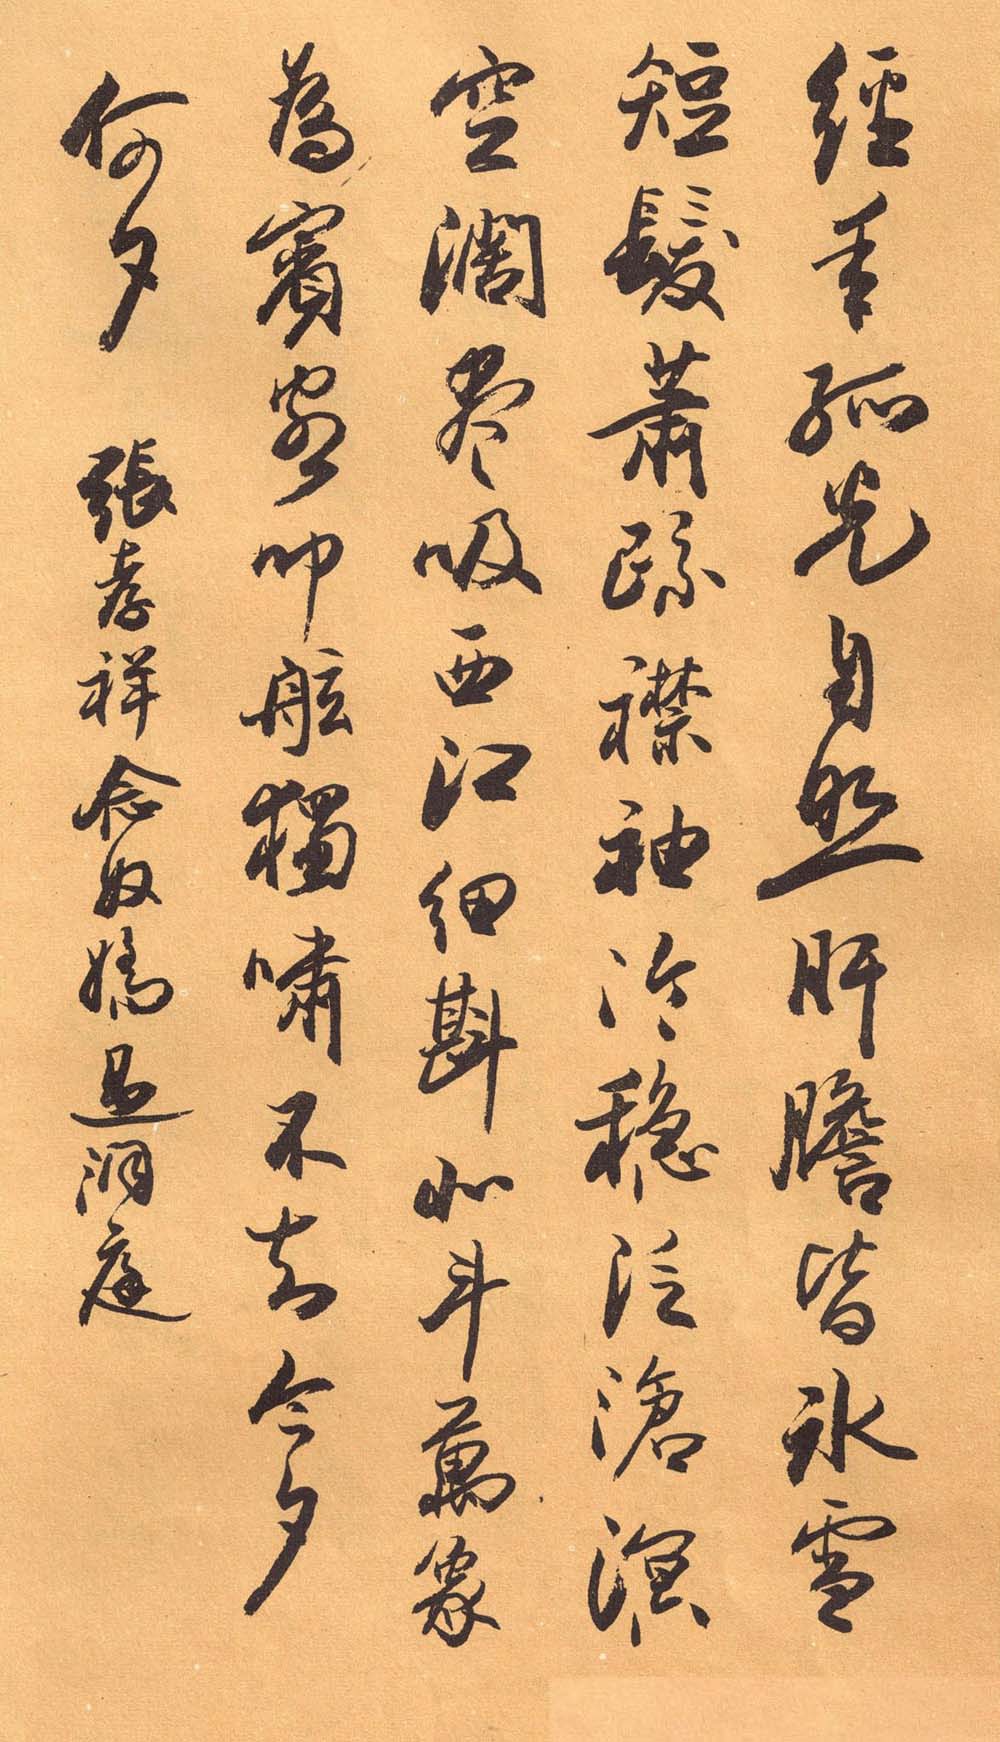 經年孤光自照肝膽皆冰雪
短髮蕭疏襟袖冷穩泛滄溟
空闊盡吸西江細斟北斗萬象
為賓客叩舷獨嘯不知今夕
何夕 張孝祥念奴嬌過洞庭